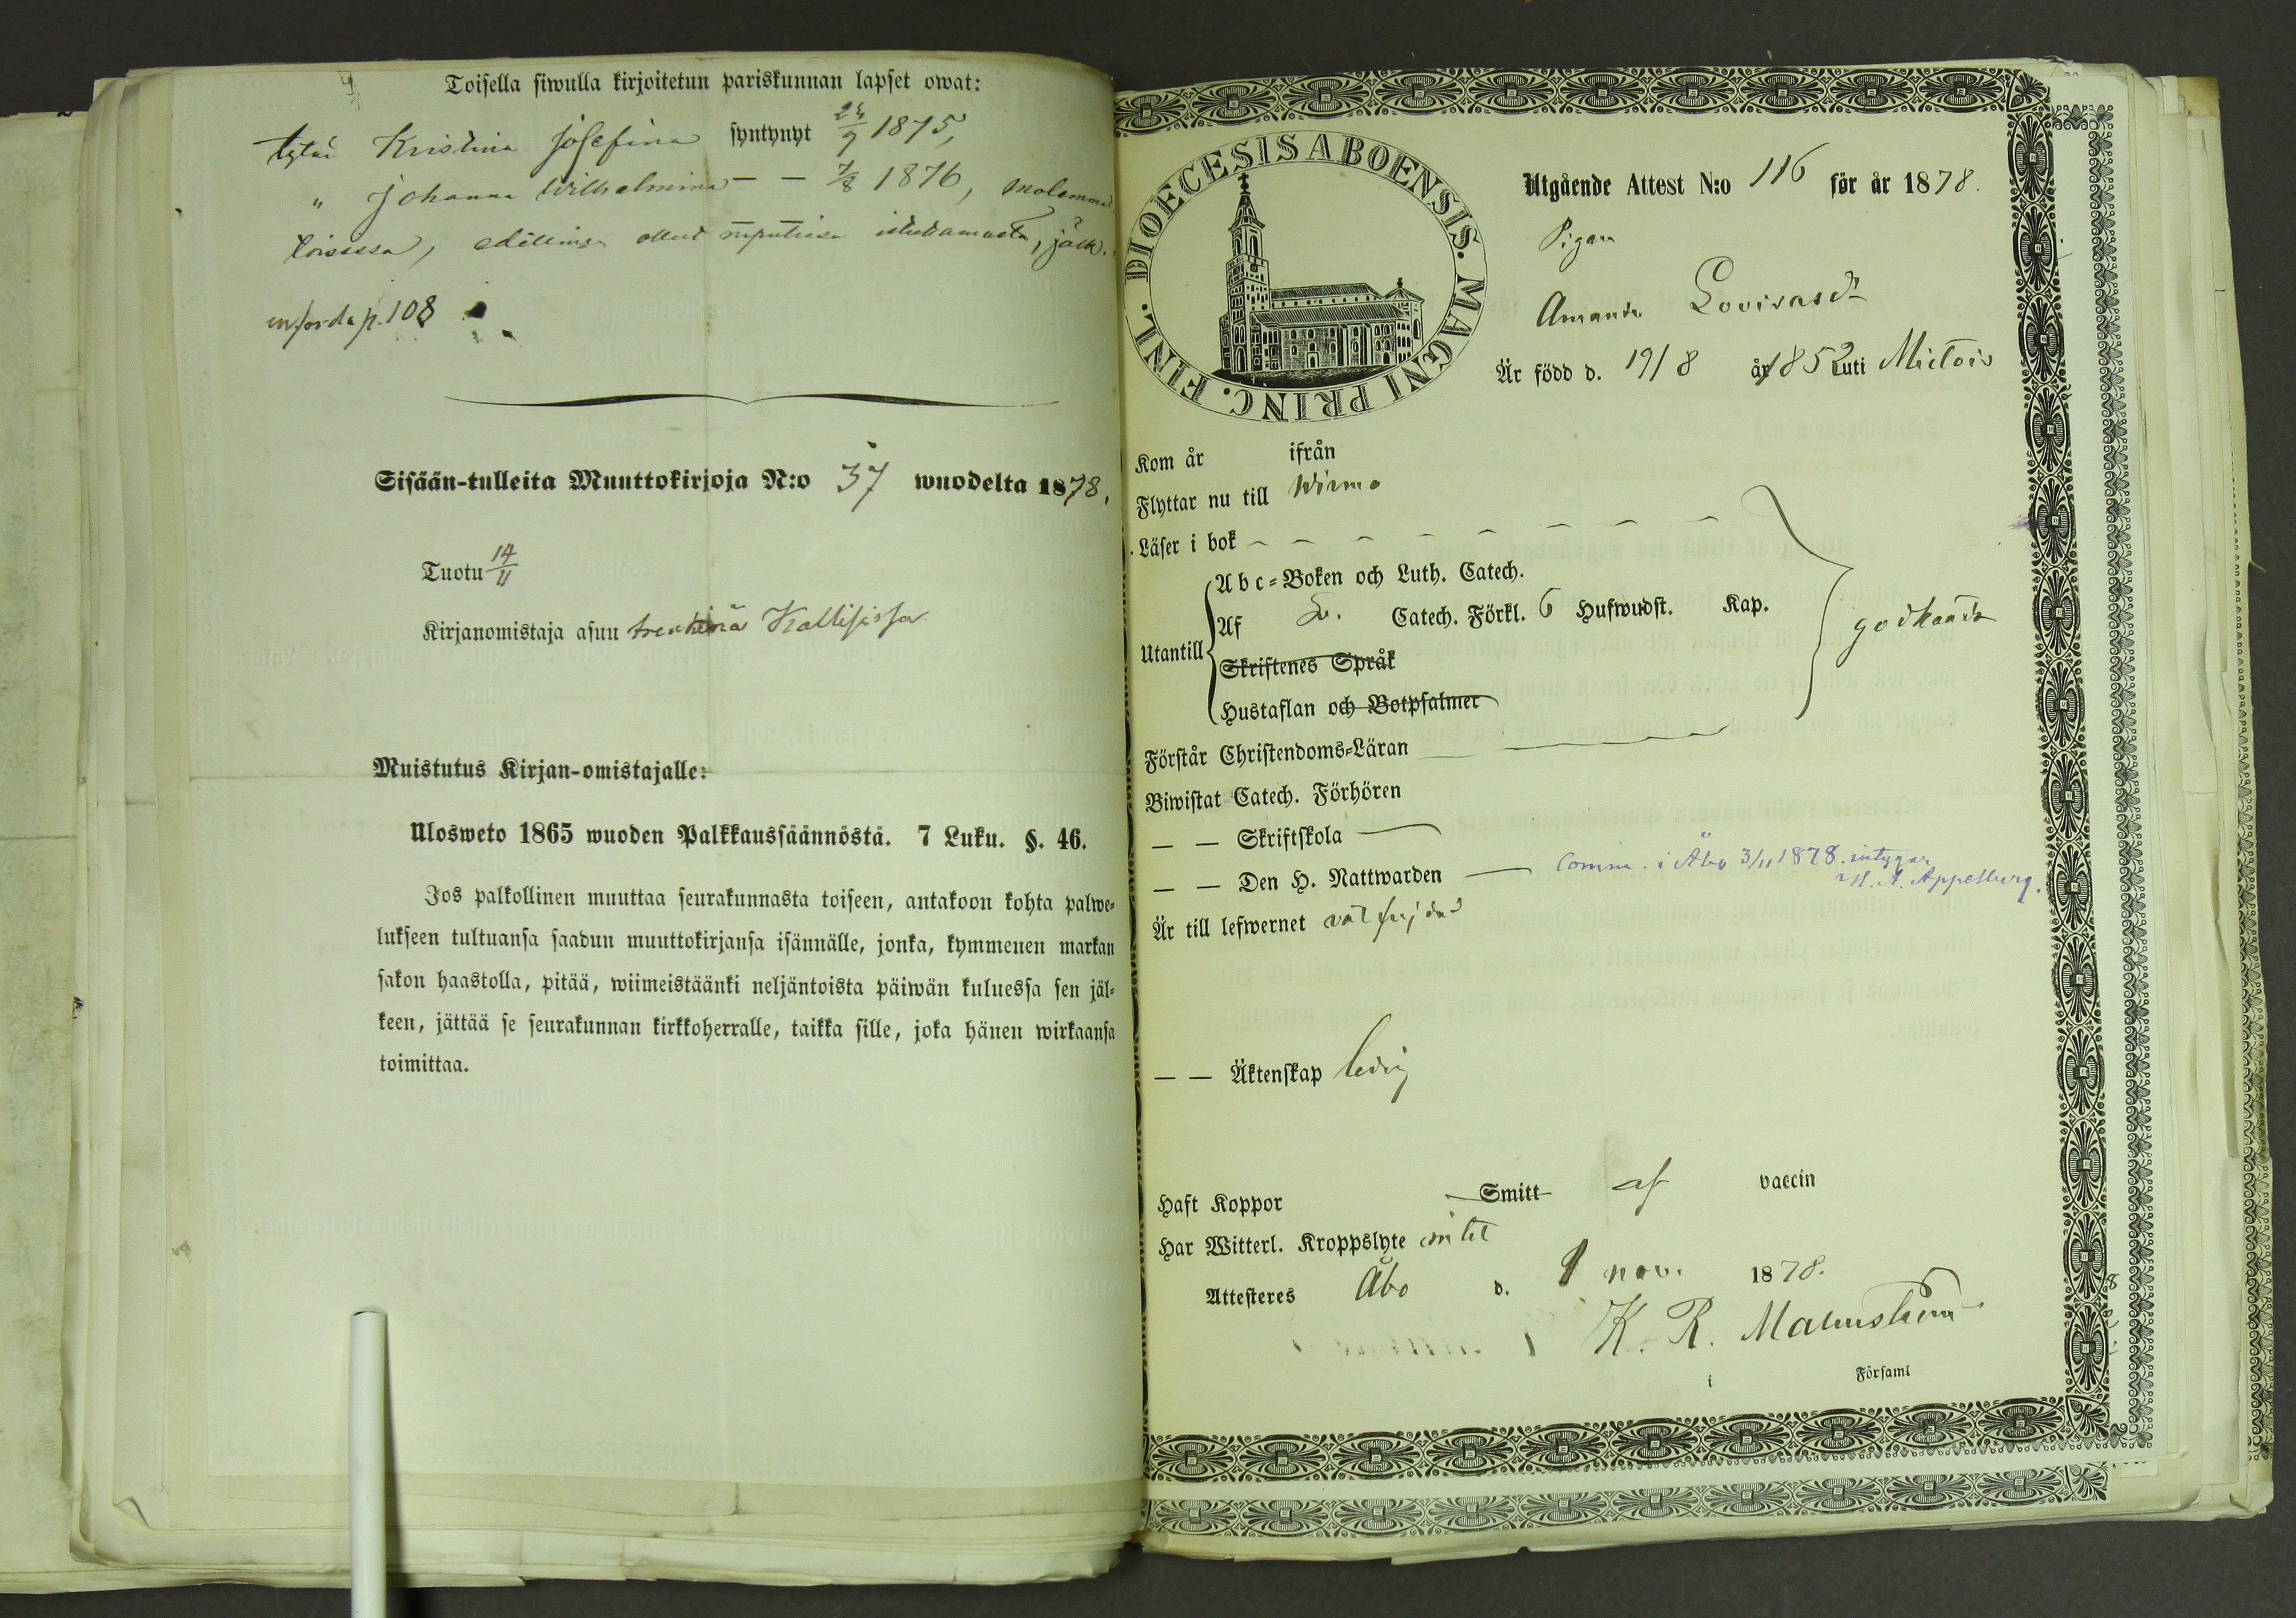 Toisella siwulla kirjoitetun pariskunnan lapset owat:
tytär Kristina Josefina syntynyt 24/9 1875,
" Johanna Wilhelmina — — 7/8 1876, molemmat
edellinen ollut istuttamasta, jälk.
införda p. 108
Sisään-tulleita Muuttokirjoja N:o 37 wuodelta 1878,
Tuotu 14/11
Kirjanomistaja asuu Kallisissa
Muistutus Kirjan-omistajalle:
Ulosweto 1865 wuoden Palkkaussäännöstä. 7 Luku. §. 46.
Jos palkollinen muuttaa seurakunnasta toiseen, antakoon kohta palwe-
lukseen tultuansa saadun muuttokirjansa isännälle, jonka, kymmenen markan
sakon haastolla, pitää, wiimeistäänki neljäntoista päiwän kuluessa sen jäl-
keen, jättää se seurakunnan kirkkoherralle, taikka sille, joka hänen wirkaansa
toimittaa.
DIOECESIS ABOENSIS. MAGNI PRINC. FINL.
Utgående Attest N:o 116 för år 1878.
Pigan
Amanda Lovisasdr
Är född d. 19/8 år 1852 uti Mietois
Kom år ifrån
Flyttar nu till Wirmo
Läser i bok
Utantill
Abc-Boken och Luth. Catech.
Af Sv. Catech. Förkl. 6 Hufwudst. Kap.
godkändt
Skriftenes Språk
Hustaflan och Botpsalmer
Förstår Christendoms-Läran
Biwistat Catech. Förhören
— — Skriftskola
— — Den H. Nattwarden — Comm. i Åbo 3/11 1878. intygar
A. Appelberg.
Är till lefwernet välfrejdad
— — Äktenskap ledig
Haft Koppor Smitt af vaccin
Har Witterl. Kroppslyte intet
Attesteres Åbo d. 1 nov. 1878.
K. R. Malmström
i Församl